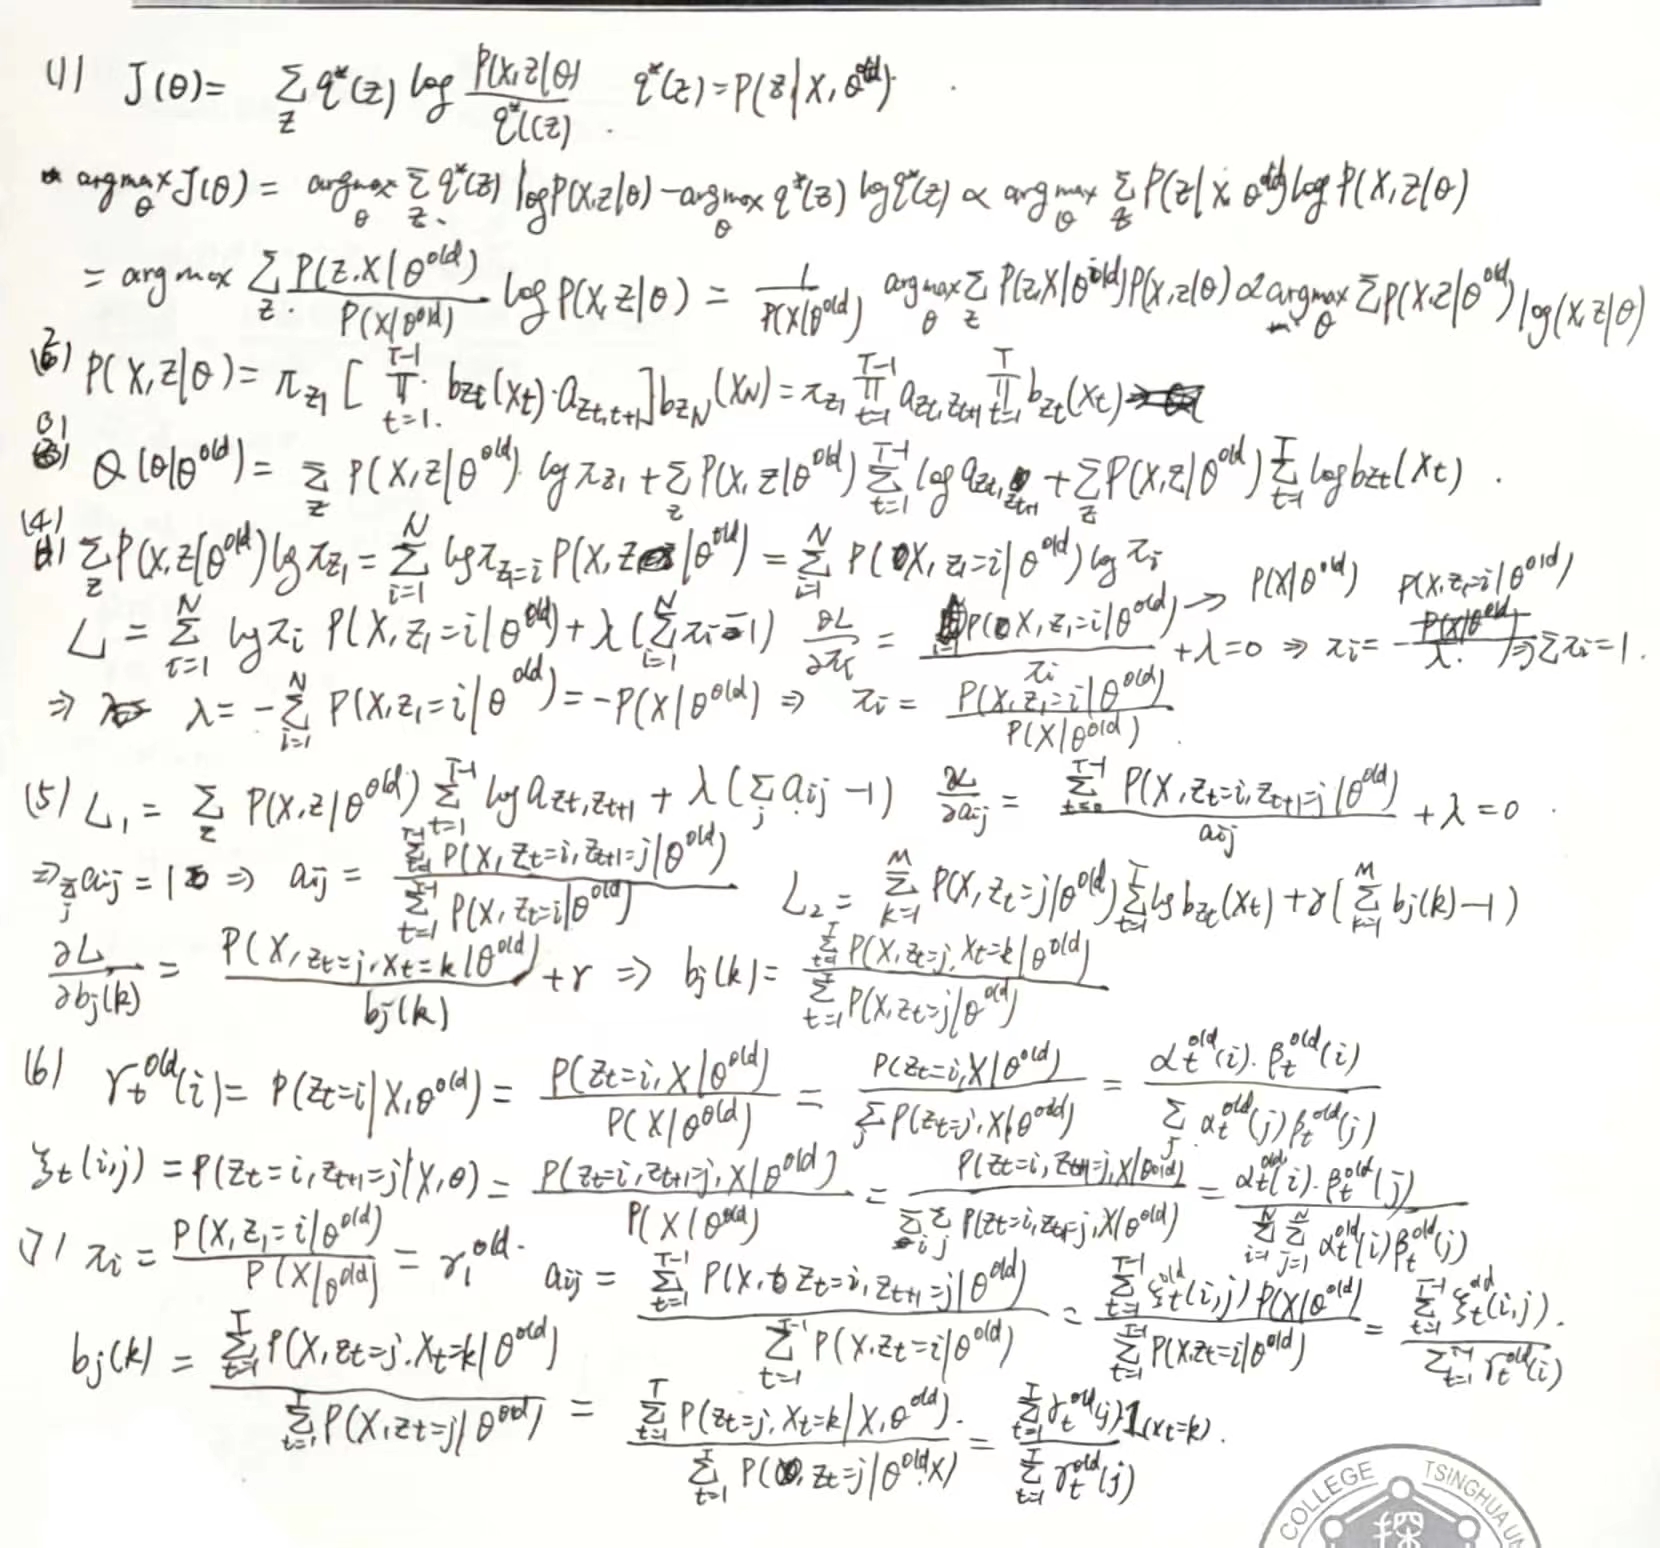 (1) J(θ)= Σ_z q*(z) log P(X,z|θ)/q*(z). q*(z)=P(z|X,θ^old).
argmax_θ J(θ) = argmax_θ Σ_z q*(z) log P(X,z|θ) - argmax_θ q*(z) log q*(z) ∝ argmax_θ Σ_z P(z|X,θ^old) log P(X,z|θ)
= argmax Σ_z P(z,X|θ^old)/P(X|θ^old) log P(X,z|θ) = 1/P(X|θ^old) argmax_θ Σ_z P(z,X|θ^old)P(X,z|θ) ∝ argmax_θ ΣP(X,z|θ^old) log(X,z|θ)
(2) P(X,z|θ) = π_{z_1} [ Π_{t=1}^{T-1} b_{zt}(x_t)·a_{zt,t+1} ] b_{zN}(X_N) = π_{z_1} Π_{t=1}^{T-1} a_{zt,zt+1} Π_{t=1}^{T} b_{zt}(x_t)
(3) Q(θ|θ^old) = Σ_z P(X,z|θ^old) log π_{z_1} + Σ_z P(X,z|θ^old) Σ_{t=1}^{T-1} log a_{zt,zt+1} + Σ_z P(X,z|θ^old) Σ_{t=1}^{T} log b_{zt}(x_t).
(4) Σ_z P(X,z|θ^old) log π_{z_1} = Σ_{i=1}^{N} log π_{z_1=i} P(X,z|θ^old) = Σ_{i=1}^{N} P(X,z_1=i|θ^old) log π_i
L = Σ_{i=1}^{N} log π_i P(X,z_1=i|θ^old) + λ(Σ_{i=1}^{N} π_i-1) ∂L/∂π_i = P(X,z_1=i|θ^old)/π_i → P(X|θ^old) +λ=0 ⇒ π_i = - P(X,z_1=i|θ^old)/λ. ⇒ Σπ_i=1.
⇒ λ = -Σ_{i=1}^{N} P(X,z_1=i|θ^old) = -P(X|θ^old) ⇒ π_i = P(X,z_1=i|θ^old)/P(X|θ^old).
(5) L_1 = Σ_z P(X,z|θ^old) Σ_{t=1}^{T-1} log a_{zt,zt+1} + λ(Σ_j a_ij -1) ∂L/∂a_ij = Σ_{t=0}^{T-1} P(X,z_t=i,z_{t+1}=j|θ^old)/a_ij + λ=0.
⇒ Σ_j a_ij = 1 ⇒ a_ij = Σ_{t=1}^{T-1} P(X,z_t=i,z_{t+1}=j|θ^old)/Σ_{t=1}^{T-1} P(X,z_t=i|θ^old) L_2 = Σ_{k=1}^{M} P(X,z_t=j|θ^old) Σ_{t=1}^{T} log b_{zt}(x_t) + γ(Σ_{k=1}^{M} b_j(k)-1)
∂L/∂b_j(k) = P(X,z_t=j,x_t=k|θ^old)/b_j(k) + γ ⇒ b_j(k) = Σ_{t=1}^{T} P(X,z_t=j,x_t=k|θ^old)/Σ_{t=1}^{T} P(X,z_t=j|θ^old)
(6) γ_t^old(i) = P(z_t=i|X,θ^old) = P(z_t=i,X|θ^old)/P(X|θ^old) = P(z_t=i,X|θ^old)/Σ_j P(z_t=j,X|θ^old) = α_t^old(i)·β_t^old(i)/Σ_j α_t^old(j)β_t^old(j)
ξ_t(i,j) = P(z_t=i,z_{t+1}=j|X,θ) = P(z_t=i,z_{t+1}=j,X|θ^old)/P(X|θ^old) = P(z_t=i,z_{t+1}=j,X|θ^old)/Σ_i Σ_j P(z_t=i,z_{t+1}=j,X|θ^old) = α_t^old(i)·β_t^old(j)/Σ_{i=1}^{N} Σ_{j=1}^{N} α_t^old(i)β_t^old(j)
(7) π_i = P(X,z_1=i|θ^old)/P(X|θ^old) = γ_1^old. a_ij = Σ_{t=1}^{T-1} P(X,z_t=i,z_{t+1}=j|θ^old)/Σ_{t=1}^{T-1} P(X,z_t=i|θ^old) = Σ_{t=1}^{T-1} ξ_t^old(i,j)P(X|θ^old)/Σ_{t=1}^{T-1} P(X,z_t=i|θ^old) = Σ_{t=1}^{T-1} ξ_t^old(i,j)/Σ_{t=1}^{T-1} γ_t^old(i).
b_j(k) = Σ_{t=1}^{T} P(X,z_t=j,x_t=k|θ^old)/Σ_{t=1}^{T} P(X,z_t=j|θ^old) = Σ_{t=1}^{T} P(z_t=j,x_t=k|X,θ^old)/Σ_{t=1}^{T} P(z_t=j|θ^old,X) = Σ_{t=1}^{T} γ_t^old(j)1(x_t=k)/Σ_{t=1}^{T} γ_t^old(j).
COLLEGE TSINGHUA UN
探